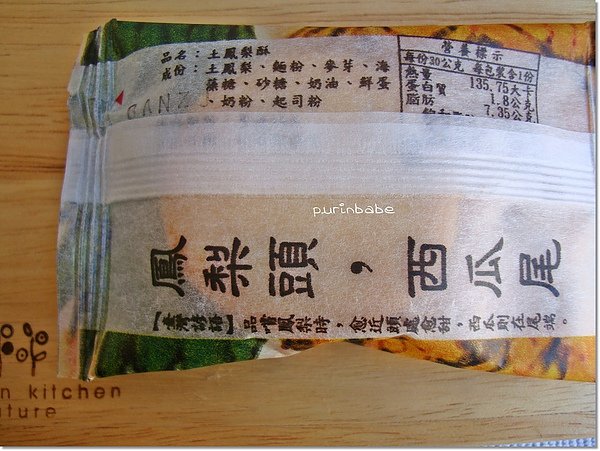 品名：土鳳梨酥
成份：土鳳梨、麵粉、麥芽、海
藻糖、砂糖、奶油、鮮蛋
、奶粉、起司粉
SANZ
營養標示
每份30公克 每包裝含1份
熱量 135.75大卡
蛋白質 1.8公克
脂肪 7.35公克
purinbabe
鳳梨頭，西瓜尾
品嚐鳳梨時，愈近頭處愈甜，西瓜則在尾端。
n kitchen
ature